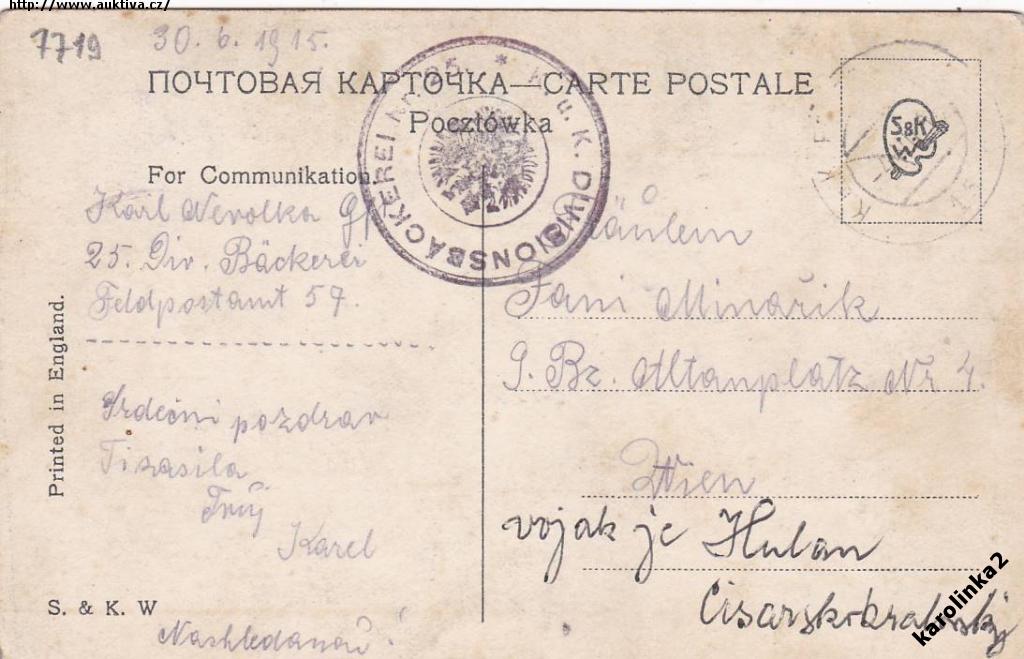 http://www.auktiva.cz/
7719
30. 6. 1915.
ПОЧТОВАЯ КАРТОЧКА—CARTE POSTALE
Pocztówka
For Communikation.
K. u. K. DIVISIONSBÄCKEREI Nr. 25. *
S&K
Karl Nevolka
25. Div. Bäckerei
Feldpostamt 57.
Srdečni pozdrav
Ti zasila
Tvůj
Karel
Nashledanou!
Fräulein
Fani Minařik
9. Bz. Altanplatz Nr 4.
Wien
vojak je Hulan
Cisarskokralovsky
Printed in England.
S. & K. W
karolinka2